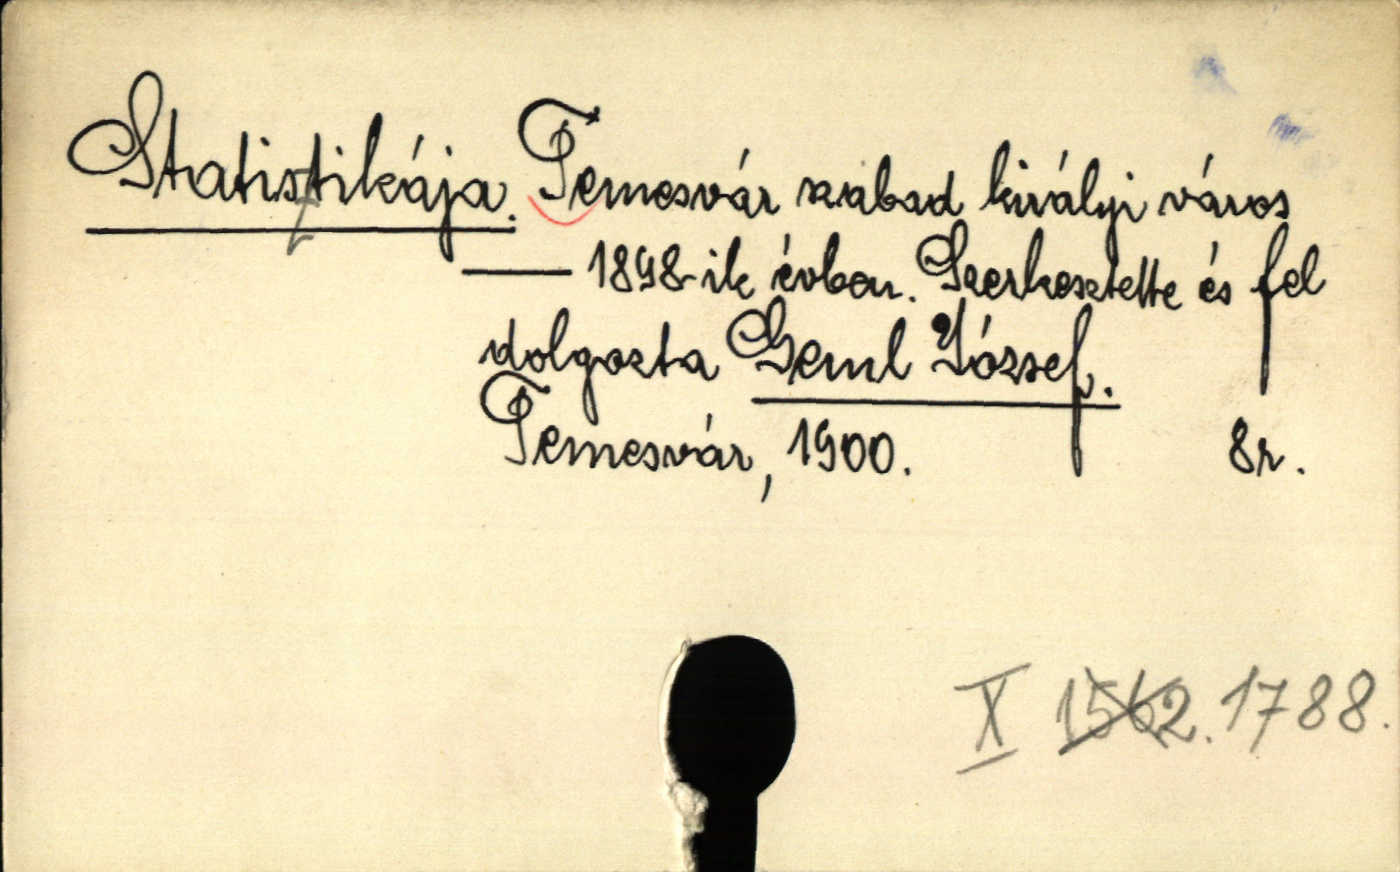 Statistikája. Temesvár szabad királyi város
—— 1898-ik évben. Szerkesztette és fel
dolgozta Geml József.
Temesvár, 1900. 8r.
X 1562. 1788.